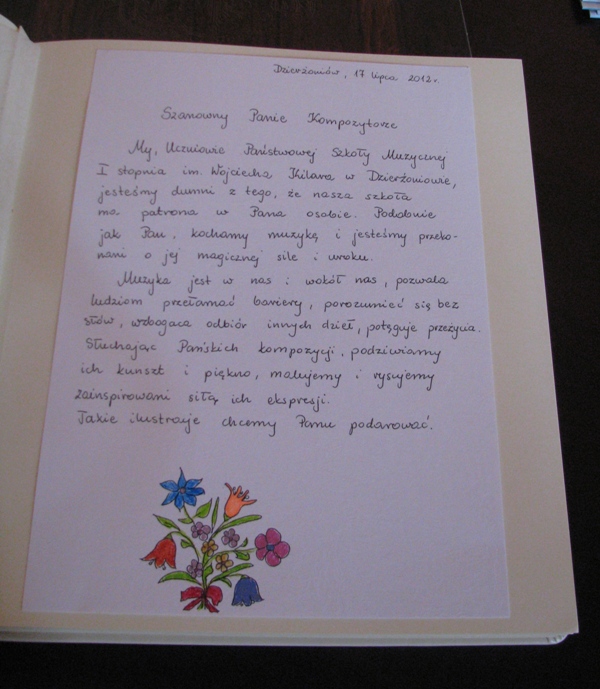 Dzierżoniów, 17 lipca 2012r.
Szanowny Panie Kompozytorze
My, Uczniowie Państwowej Szkoły Muzycznej
I stopnia im. Wojciecha Kilara w Dzierżoniowie,
jesteśmy dumni z tego, że nasza szkoła
ma patrona w Pana osobie. Podobnie
jak Pan, kochamy muzykę i jesteśmy przeko-
nani o jej magicznej sile i uroku.
Muzyka jest w nas i wokół nas, pozwala
ludziom przełamać bariery, porozumieć się bez
słów, wzbogaca odbiór innych dzieł, potęguje przeżycia.
Słuchając Pańskich kompozycji, podziwiamy
ich kunszt i piękno, malujemy i rysujemy
zainspirowani siłą ich ekspresji.
Takie ilustracje chcemy Panu podarować.